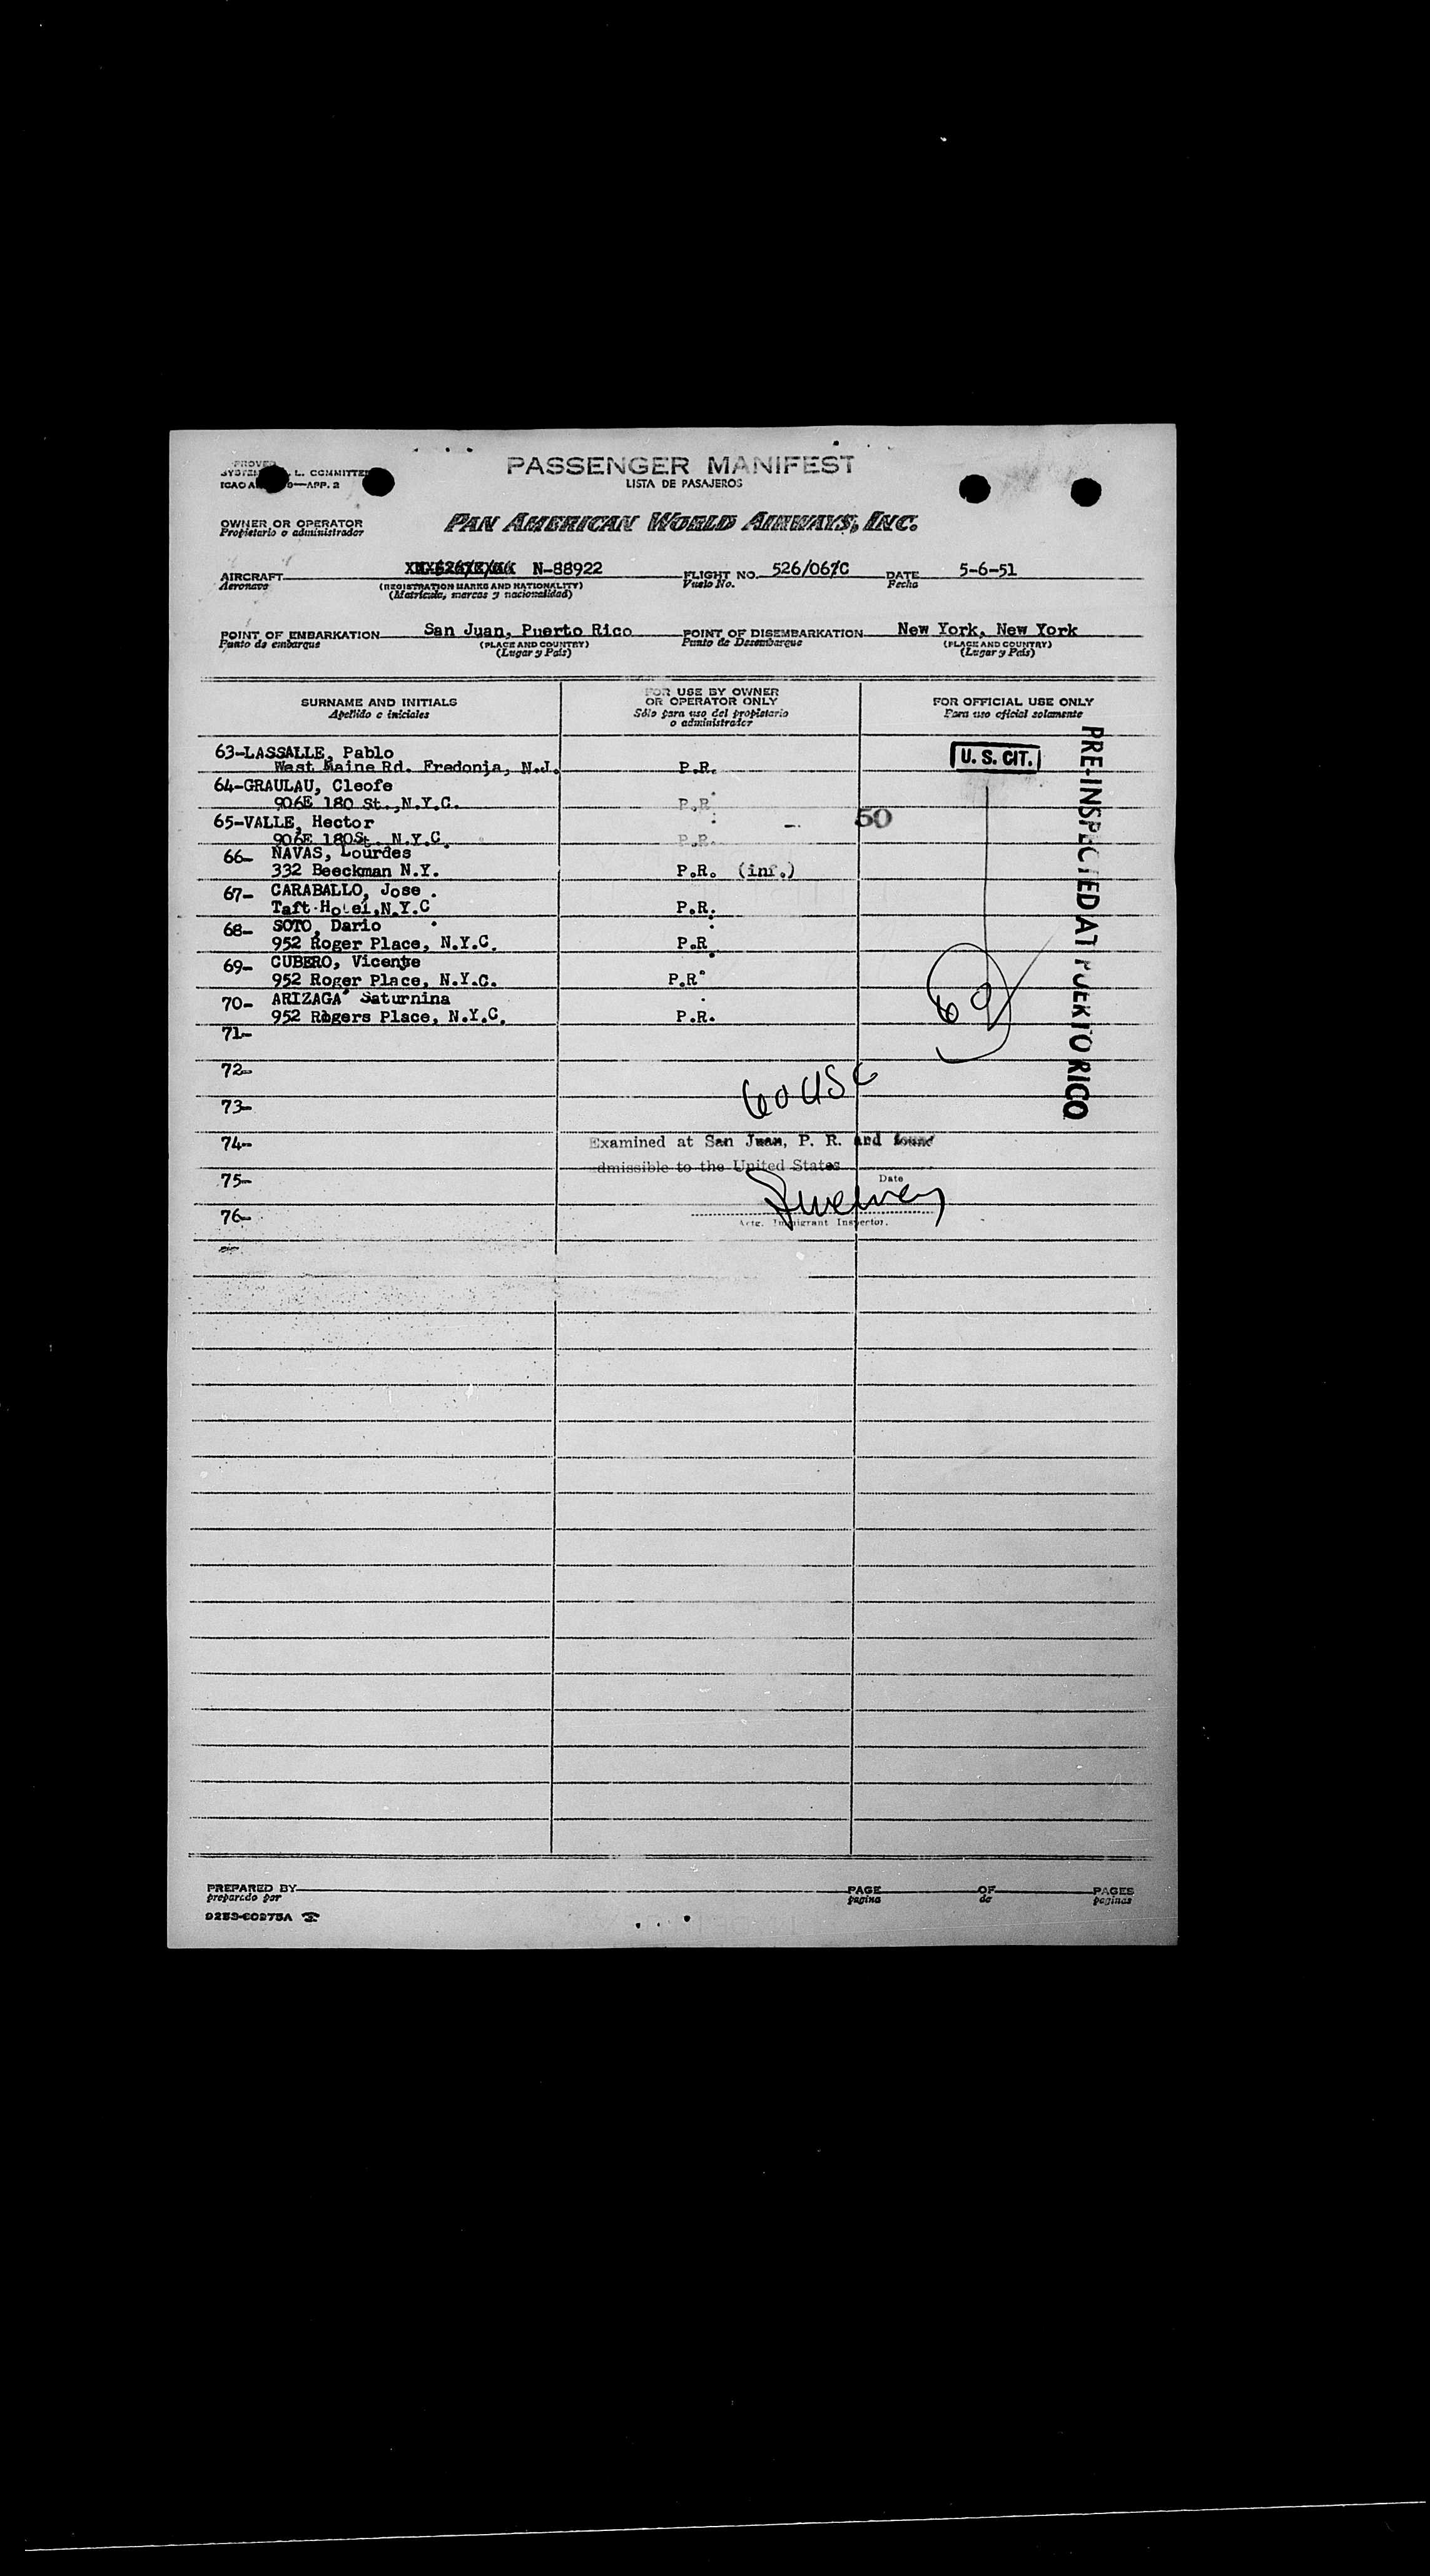 L. COMMITTEE
ICAO A 9—APP. 2
PASSENGER MANIFEST
LISTA DE PASAJEROS
OWNER OR OPERATOR
Propietario o administrador
PAN AMERICAN WORLD AIRWAYS, INC.
AIRCRAFT N-88922 FLIGHT NO. 526/06 DATE 5-6-51
Aeronave (REGISTRATION MARKS AND NATIONALITY) Vuelo No. Fecha
(Matricula, marcas y nacionalidad)
POINT OF EMBARKATION San Juan, Puerto Rico POINT OF DISEMBARKATION New York, New York
Punto de embarque (PLACE AND COUNTRY) Punto de Desembarque (PLACE AND COUNTRY)
(Lugar y País) (Lugar y País)
SURNAME AND INITIALS
Apellido e iniciales
FOR USE BY OWNER
OR OPERATOR ONLY
Sólo para uso del propietario
o administrador
FOR OFFICIAL USE ONLY
Para uso oficial solamente
63-LASSALLE, Pablo
West Maine Rd. Fredonia, N.J. P.R.
U. S. CIT.
64-GRAULAU, Cleofe
906E 180 St., N.Y.C. P.R.
65-VALLE, Hector 50
906E 180St. N.Y.C. P.R.
66- NAVAS, Lourdes
332 Beeckman N.Y. P.R. (inf.)
67- CARABALLO, Jose
Taft Hotel, N.Y.C P.R.
68- SOTO, Dario
952 Roger Place, N.Y.C. P.R
69- CUBERO, Vicente
952 Roger Place, N.Y.C. P.R
70- ARIZAGA Saturnina
952 Rogers Place, N.Y.C. P.R.
69
PRE-INSPECTED AT PUERTO RICO
71-
72-
73-
60 USC
74-
Examined at San Juan, P. R. and found
admissible to the United States
75-
Date
76-
Actg. Immigrant Inspector.
PREPARED BY PAGE OF PAGES
preparado por pagina de paginas